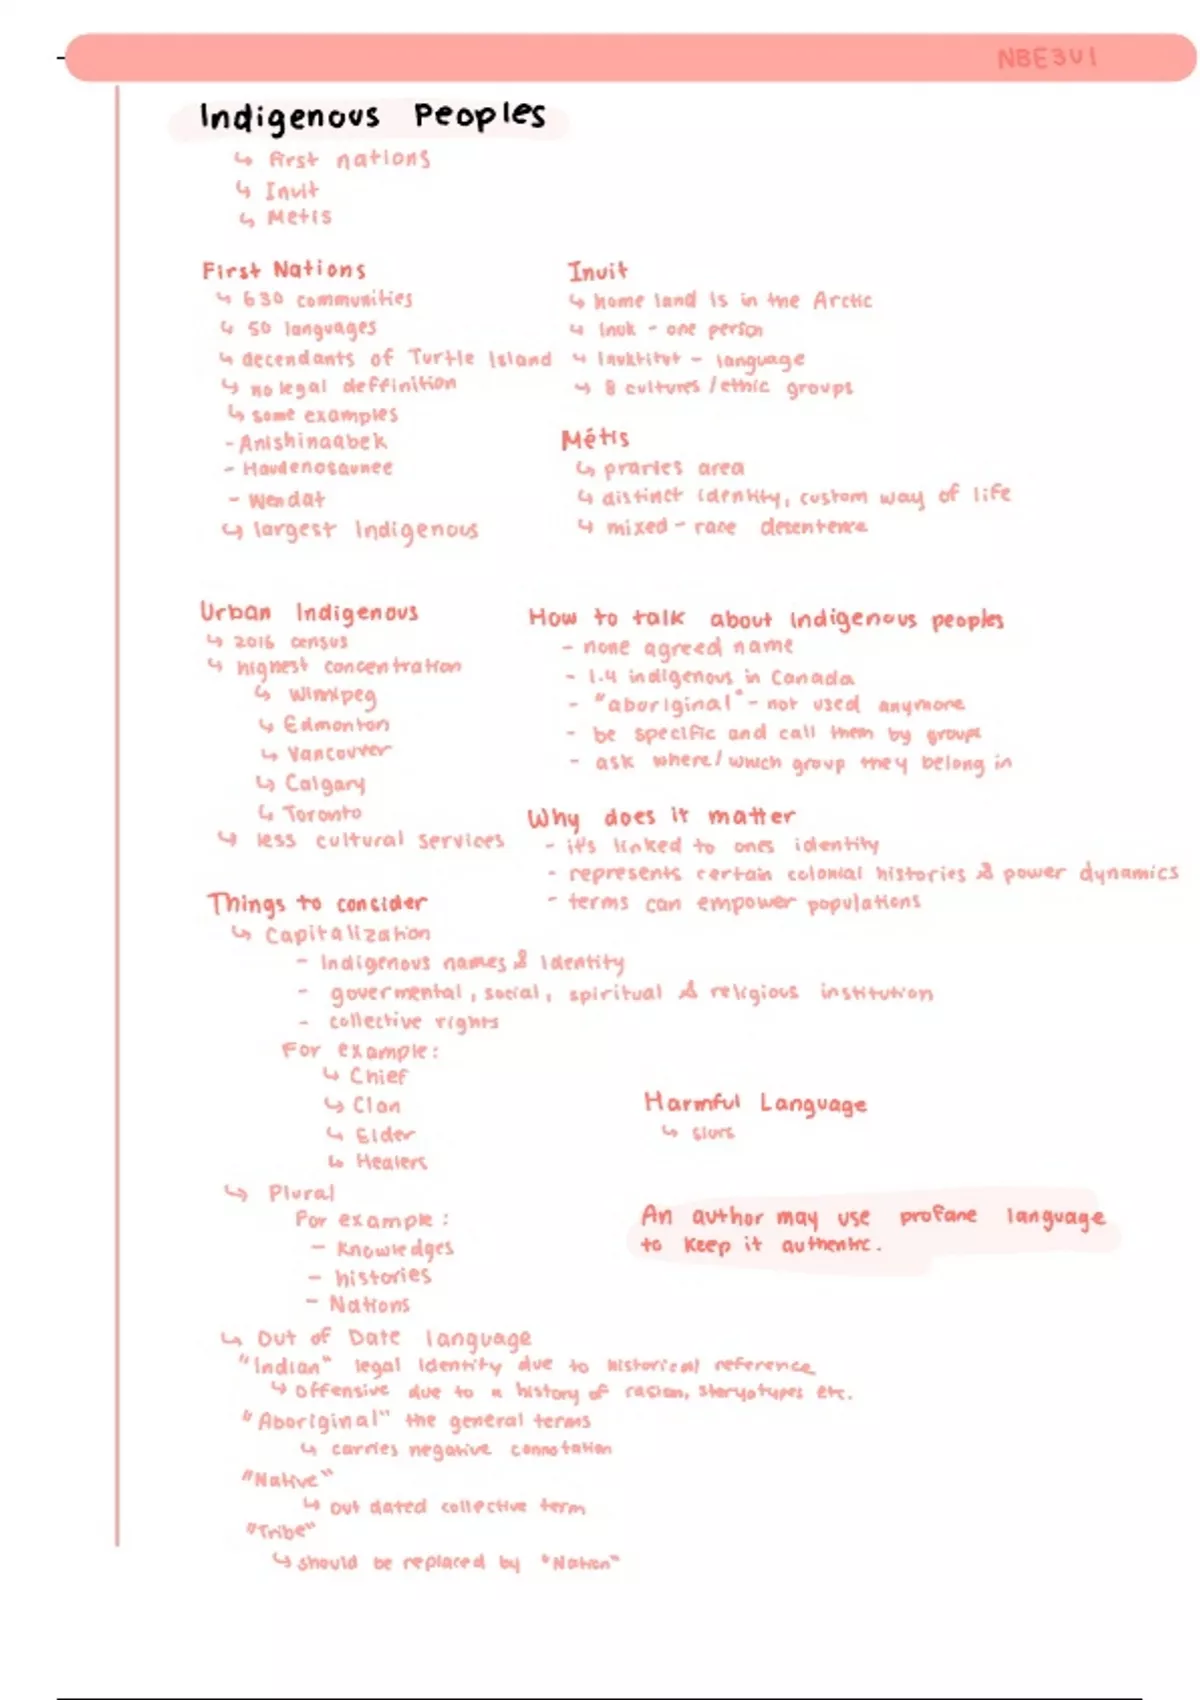 NBE3U1
Indigenous Peoples
↳ First nations
↳ Inuit
↳ Metis
First Nations
↳ 630 communities
↳ 50 languages
↳ decendants of Turtle Island
↳ no legal deffinition
↳ some examples
- Anishinaabek
- Haudenosaunee
- Wendat
↳ largest Indigenous
Inuit
↳ home land is in the Arctic
↳ Inuk - one person
↳ Inuktitut - language
↳ 8 cultures / ethic groups
Métis
↳ praries area
↳ distinct identity, custom way of life
↳ mixed - race
Urban Indigenous
↳ 2016 census
↳ highest concentration
↳ Winnipeg
↳ Edmonton
↳ Vancouver
↳ Calgary
↳ Toronto
↳ less cultural services
How to talk about indigenous peoples
- none agreed name
- 1.4 indigenous in Canada
- "aboriginal" - not used anymore
- be specific and call them by groups
- ask where / which group they belong in
Why does it matter
- it's linked to ones identity
- represents certain colonial histories & power dynamics
- terms can empower populations
Things to consider
↳ Capitalization
- Indigenous names & Identity
- govermental, social, spiritual & religious institution
- collective rights
For example:
↳ Chief
↳ Clan
↳ Elder
↳ Healers
Harmful Language
↳ slurs
An author may use profane language
to keep it authentic.
↳ Plural
For example:
- Knowledges
- histories
- Nations
↳ Out of Date language
"Indian" legal identity due to historical reference
↳ offensive due to a history of racism, steryotypes etc.
"Aboriginal" the general terms
↳ carries negative connotation
"Native"
↳ out dated collective term
"Tribe"
↳ should be replaced by "Nation"